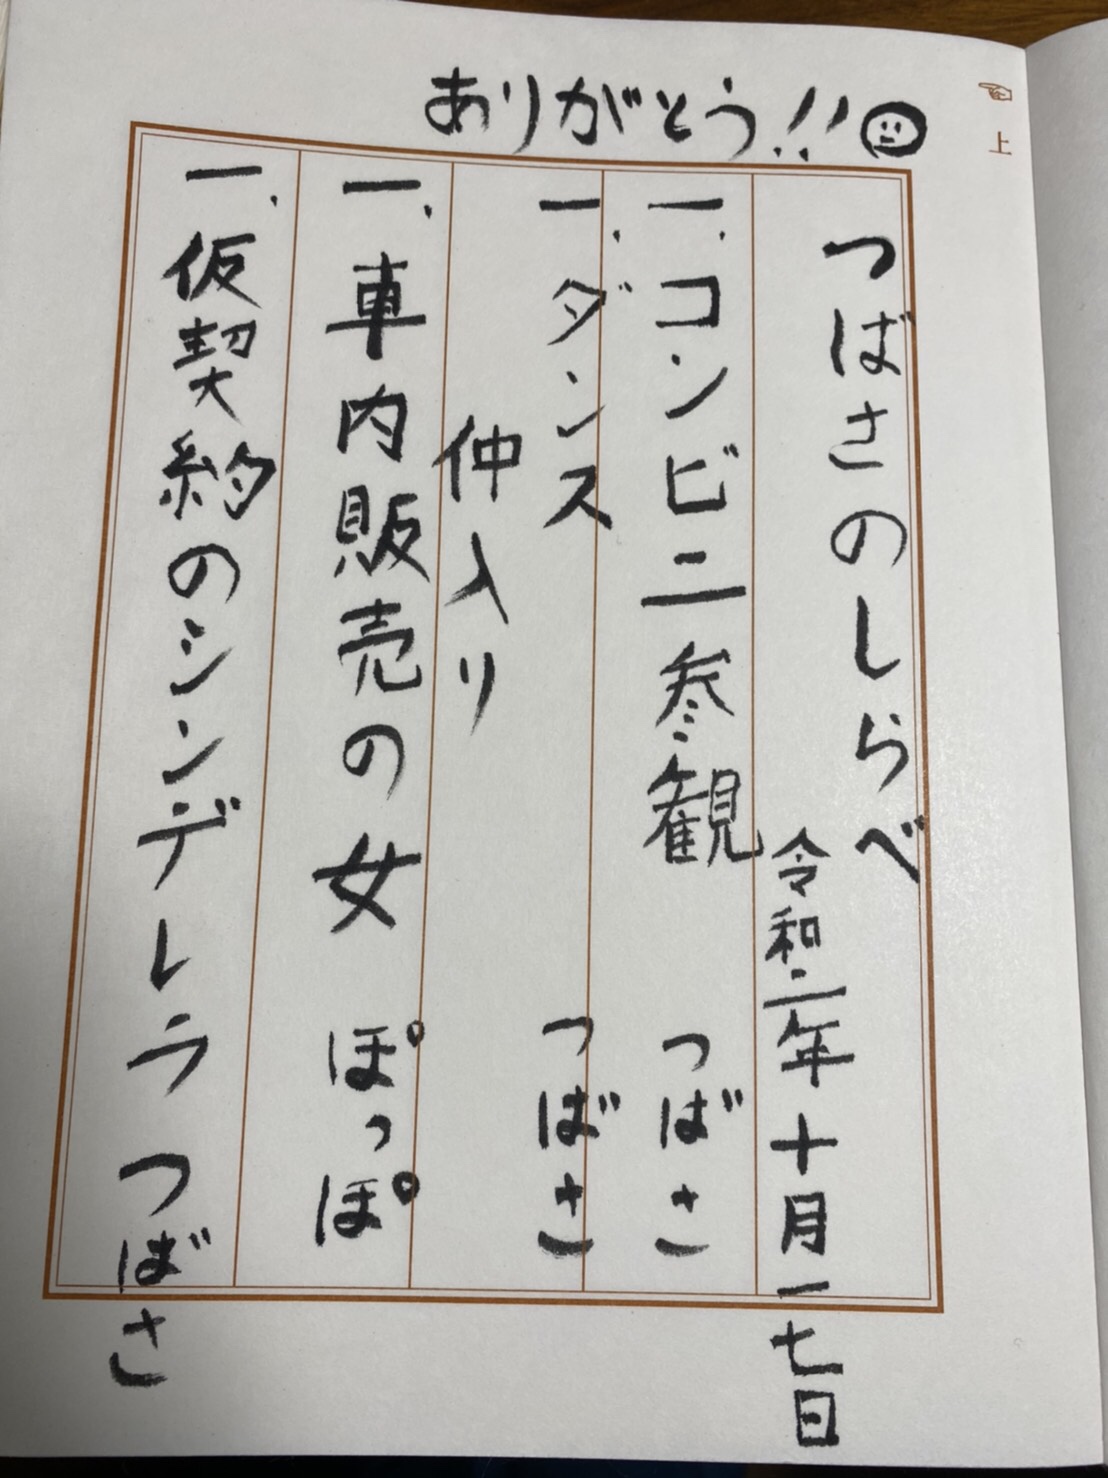 ありがとう!!
☜上
つばさのしらべ
令和二年十月一七日
一、コンビニ参観 つばさ
一、ダンス つばさ
仲入り
一、車内販売の女 ぽっぽ
一、仮契約のシンデレラ つばさ